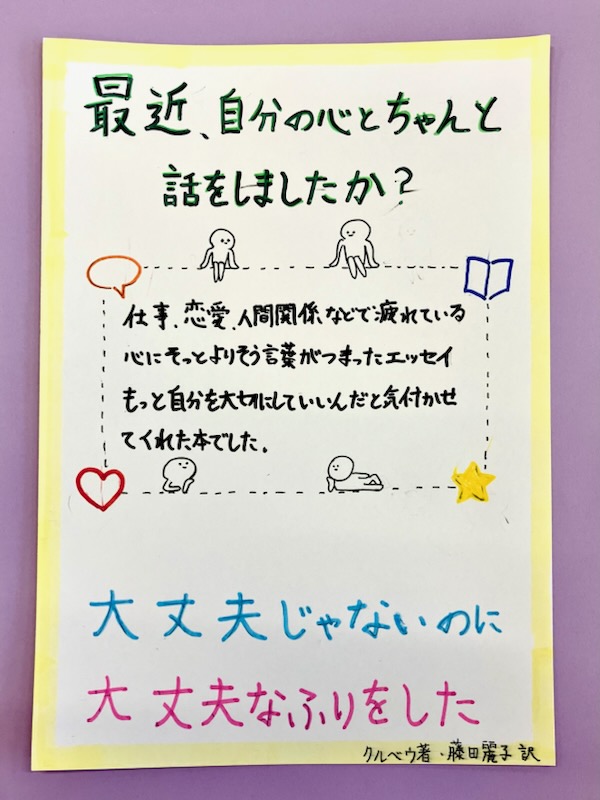 最近、自分の心とちゃんと
話をしましたか?
仕事、恋愛、人間関係などで疲れている
心にそっとよりそう言葉がつまったエッセイ
もっと自分を大切にしていいんだと気付かせ
てくれた本でした。
大丈夫じゃないのに
大丈夫なふりをした
クルベウ著・藤田麗子訳